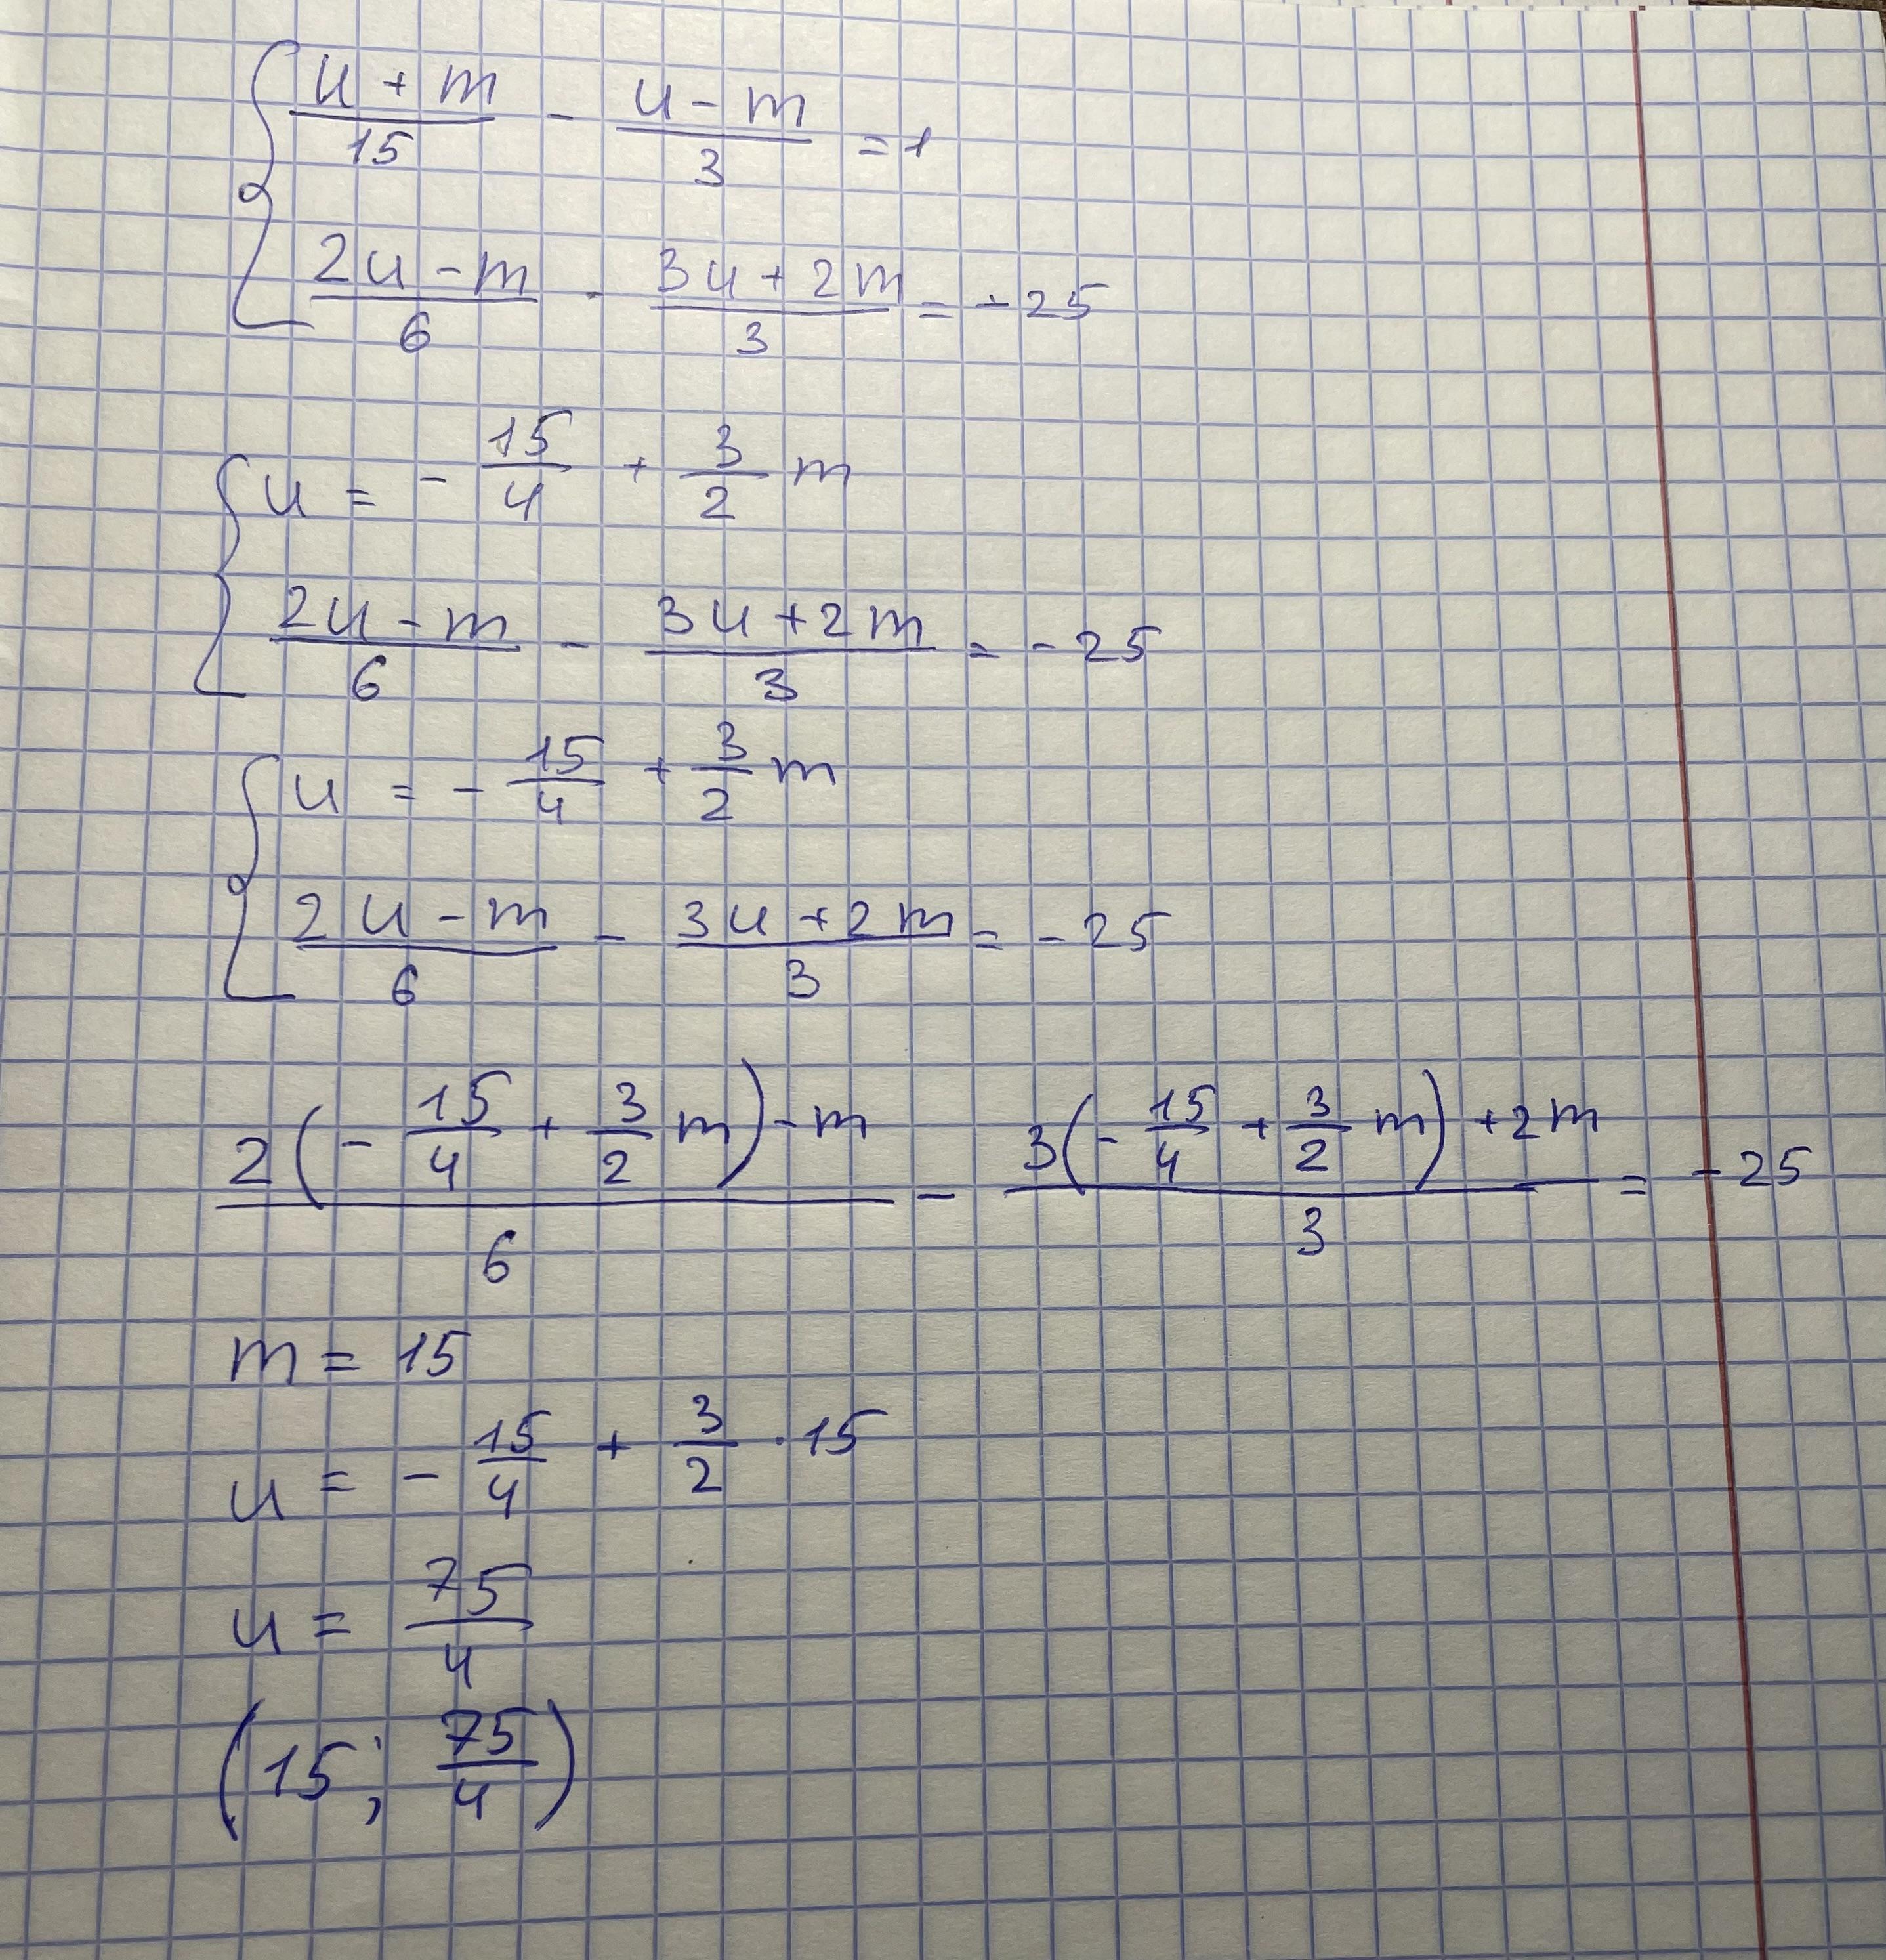 { (u + m)/15 - (u - m)/3 = 1
(2u - m)/6 - (3u + 2m)/3 = -25
{ u = - 15/4 + 3/2 m
(2u - m)/6 - (3u + 2m)/3 = - 25
{ u = - 15/4 + 3/2 m
(2u - m)/6 - (3u + 2m)/3 = - 25
(2(- 15/4 + 3/2 m) - m)/6 - (3(- 15/4 + 3/2 m) + 2m)/3 = - 25
m = 15
u = - 15/4 + 3/2 · 15
u = 75/4
(15; 75/4)